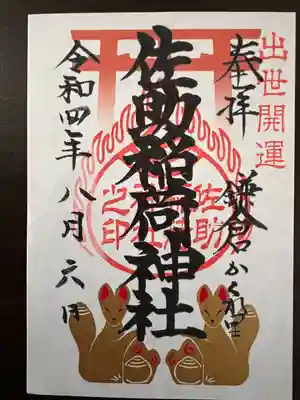 出世開運
奉拝
鎌倉かくれ里
佐助稲荷神社
佐助
之印
令和四年八月六日